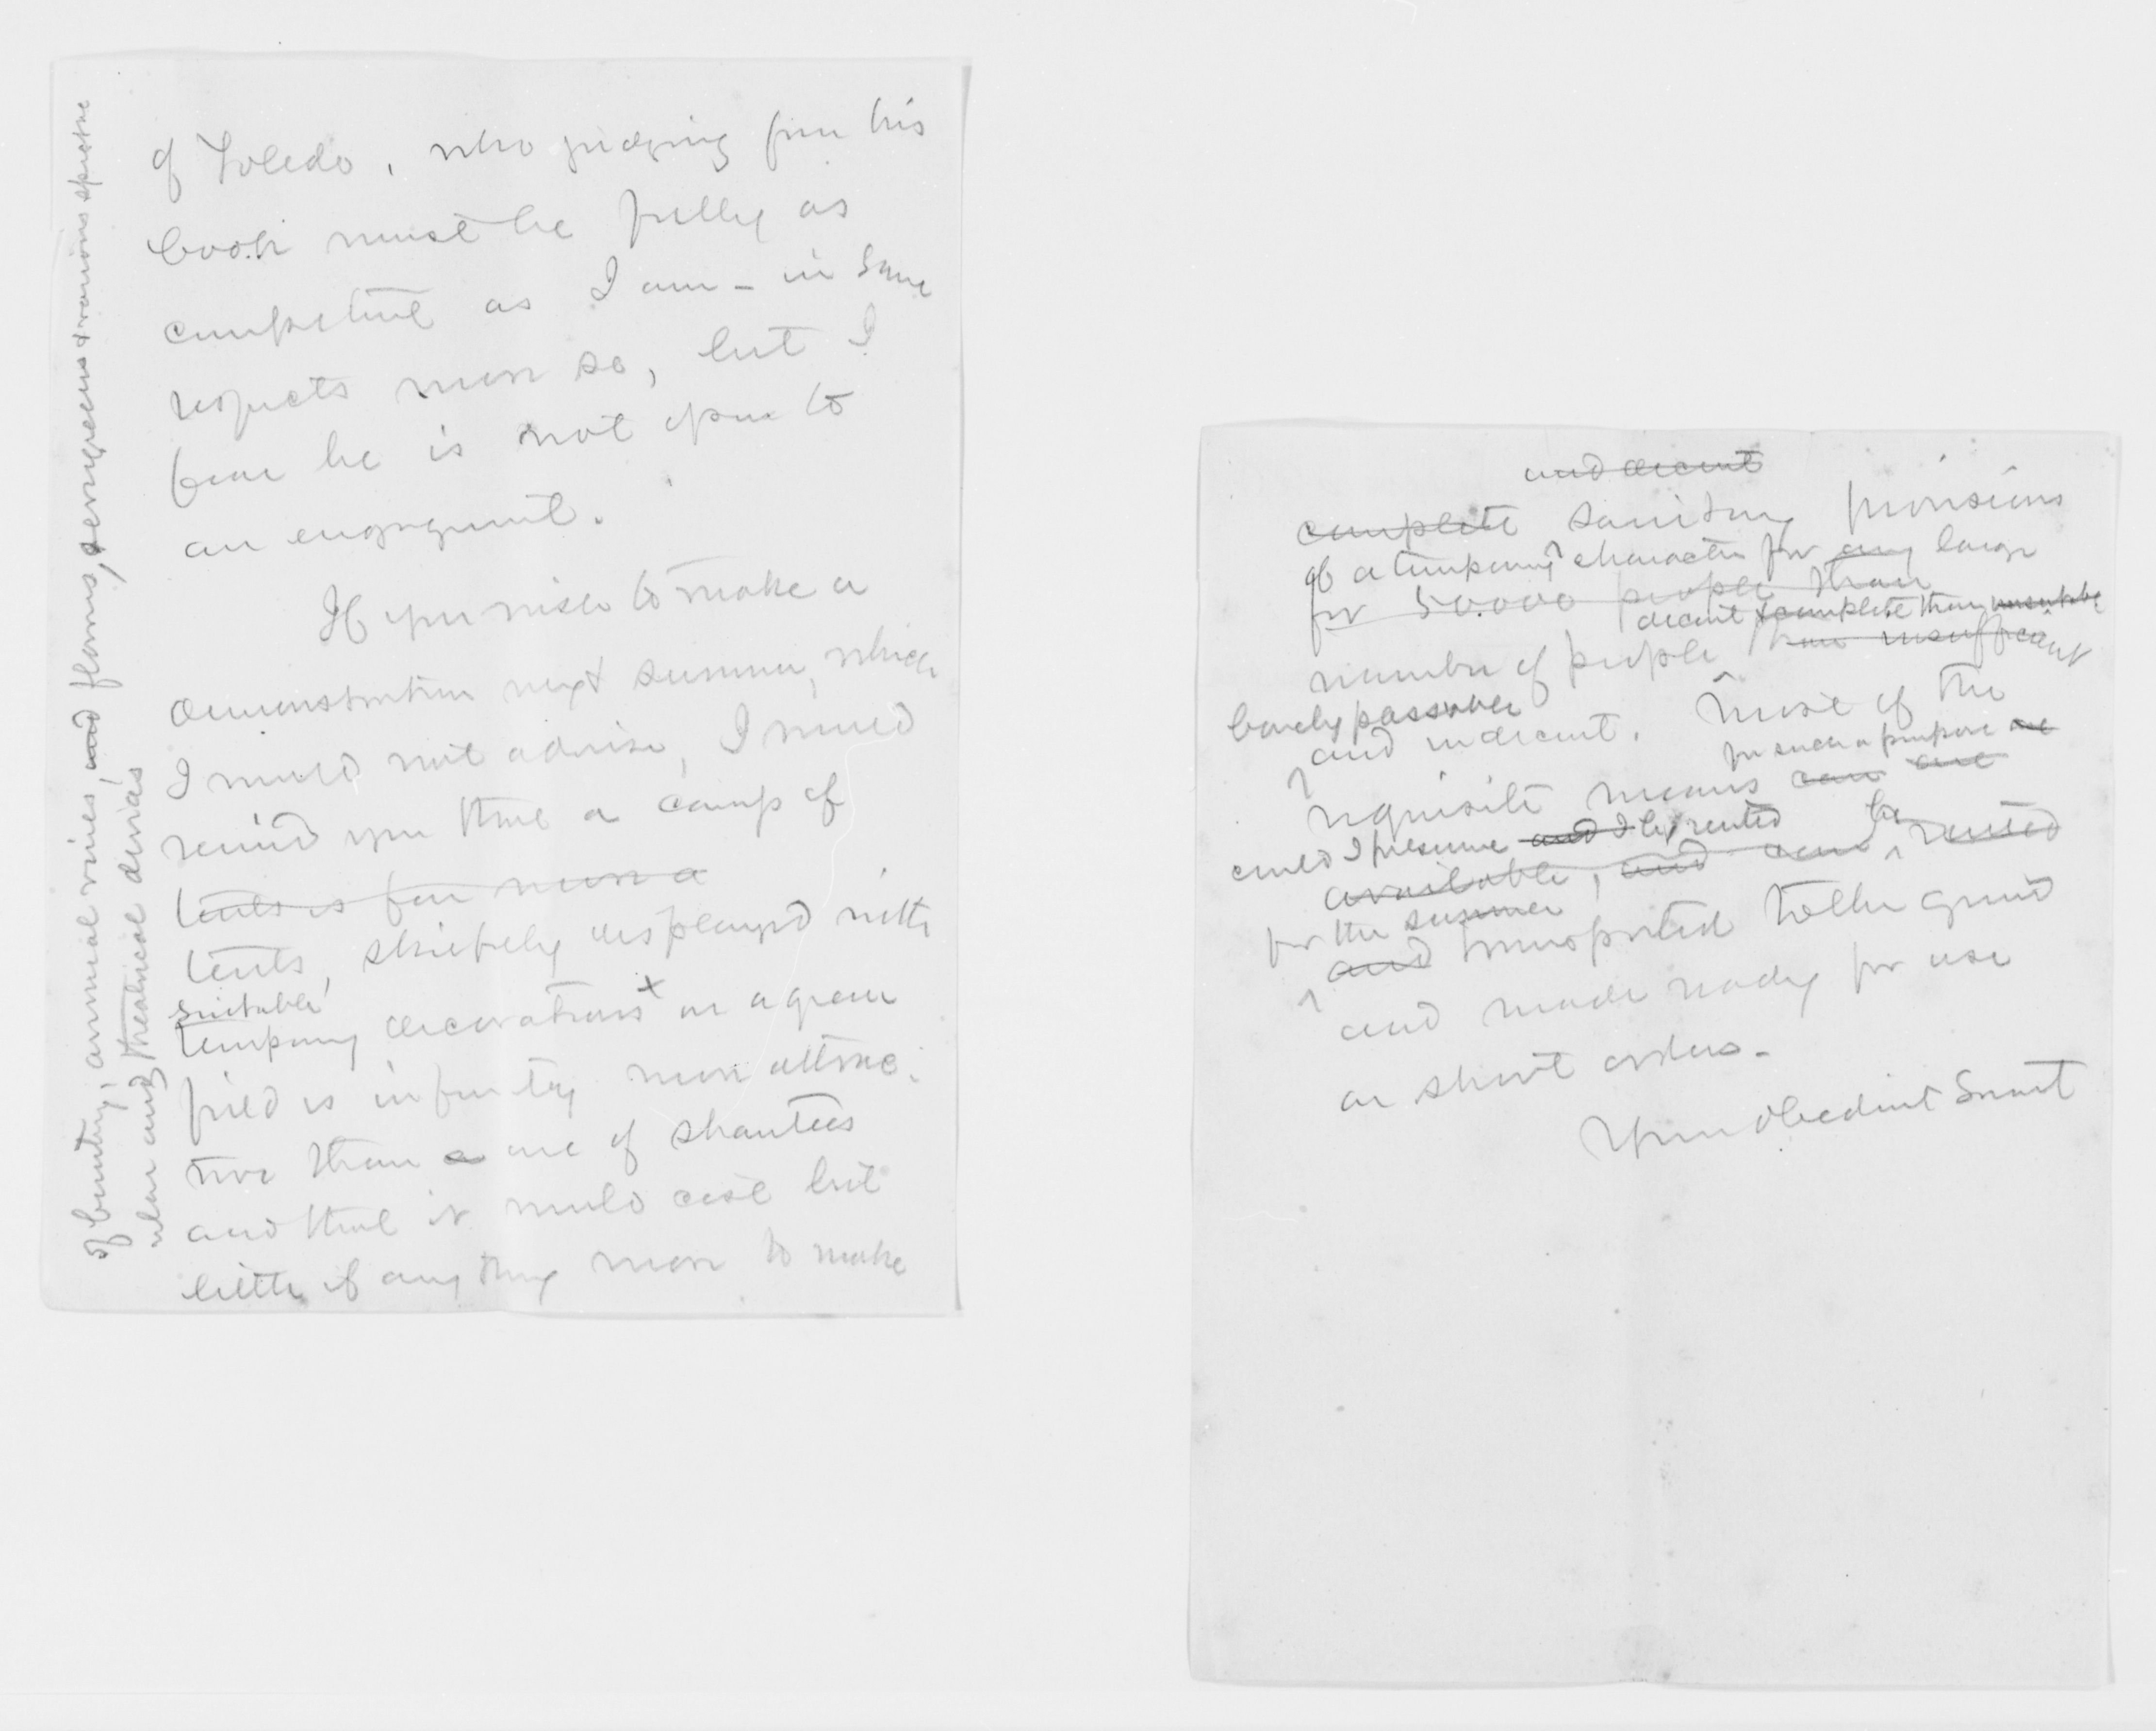 of Toledo, who judging from his
book must be fully as
competent as I am - in some
respects more so, but I
fear he is not open to
an engagement.
If you wish to make a
demonstration next summer, which
I would not advise, I would
remind you that a camp of
tents is far more a
tents, skilfully displayed with
suitable
temporary decorations x on a green
field is infinitely more attrac-
tive than a one of shantees
and that it would cost but
little if any thing more to make
of bunting, annual vines, and flowers, evergreens & various spectac
ular and theatrical devices
and decent
complete sanitary provisions
of a temporary character for any large
for 50.000 people than
decent & complete than
number of people than insufficient
barely passable
and indecent. Most of the
for such a purpose are
requisite means can are
could I presume and I be rented
be
available, and can rented
for the summer
and transported to the ground
and made ready for use
on short orders.
Your obedient Servant